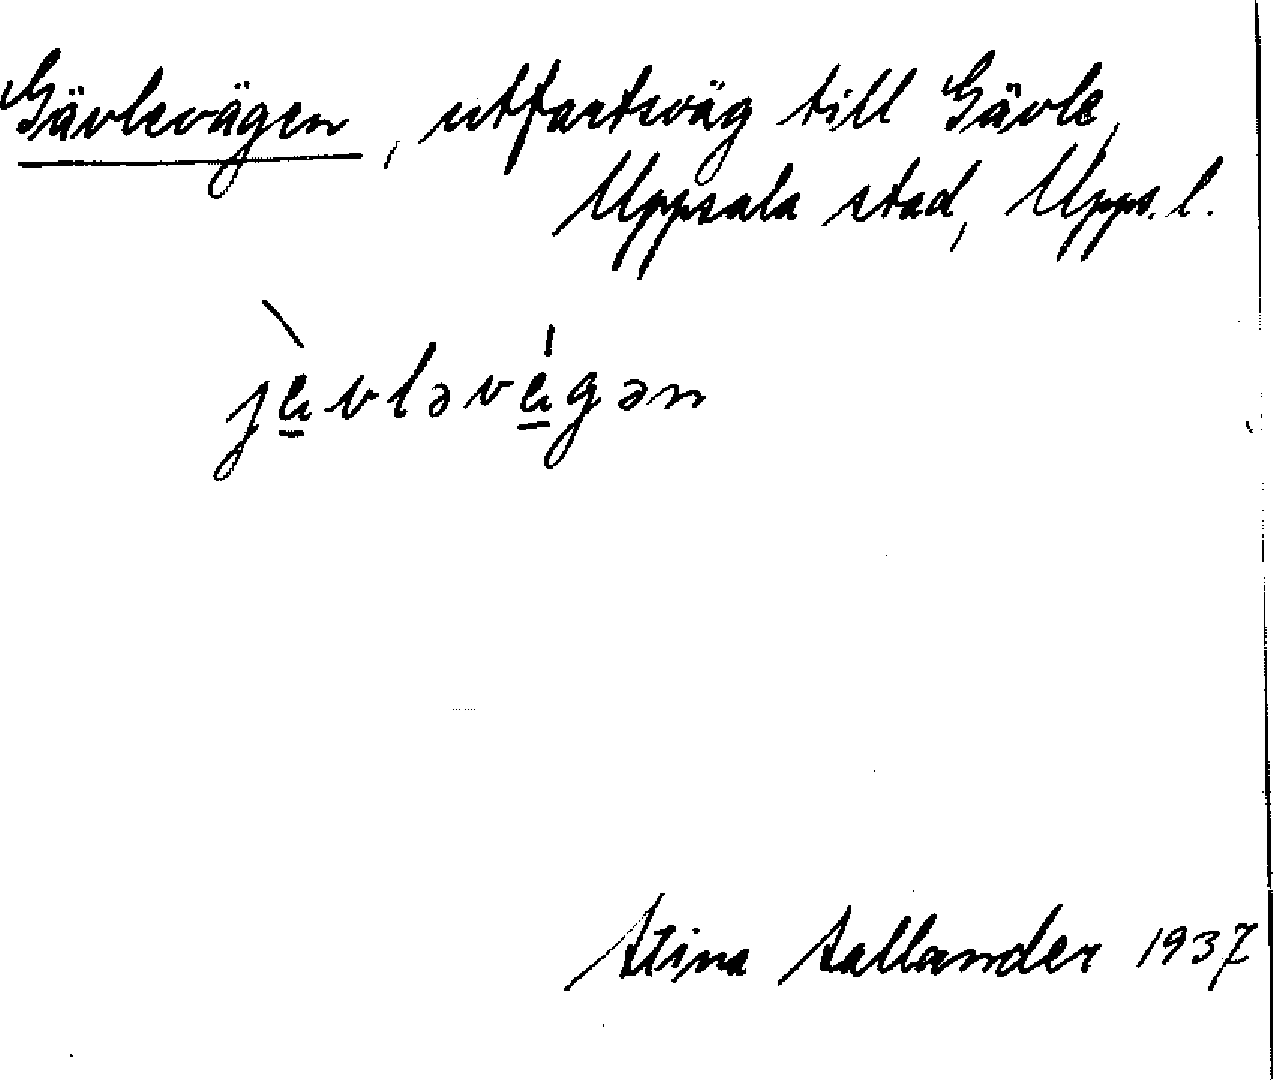 Gävlevägen, utfartsväg till Gävle,
Uppsala stad, Upps. l.
jèvləvégən
Stina Sallander 1937